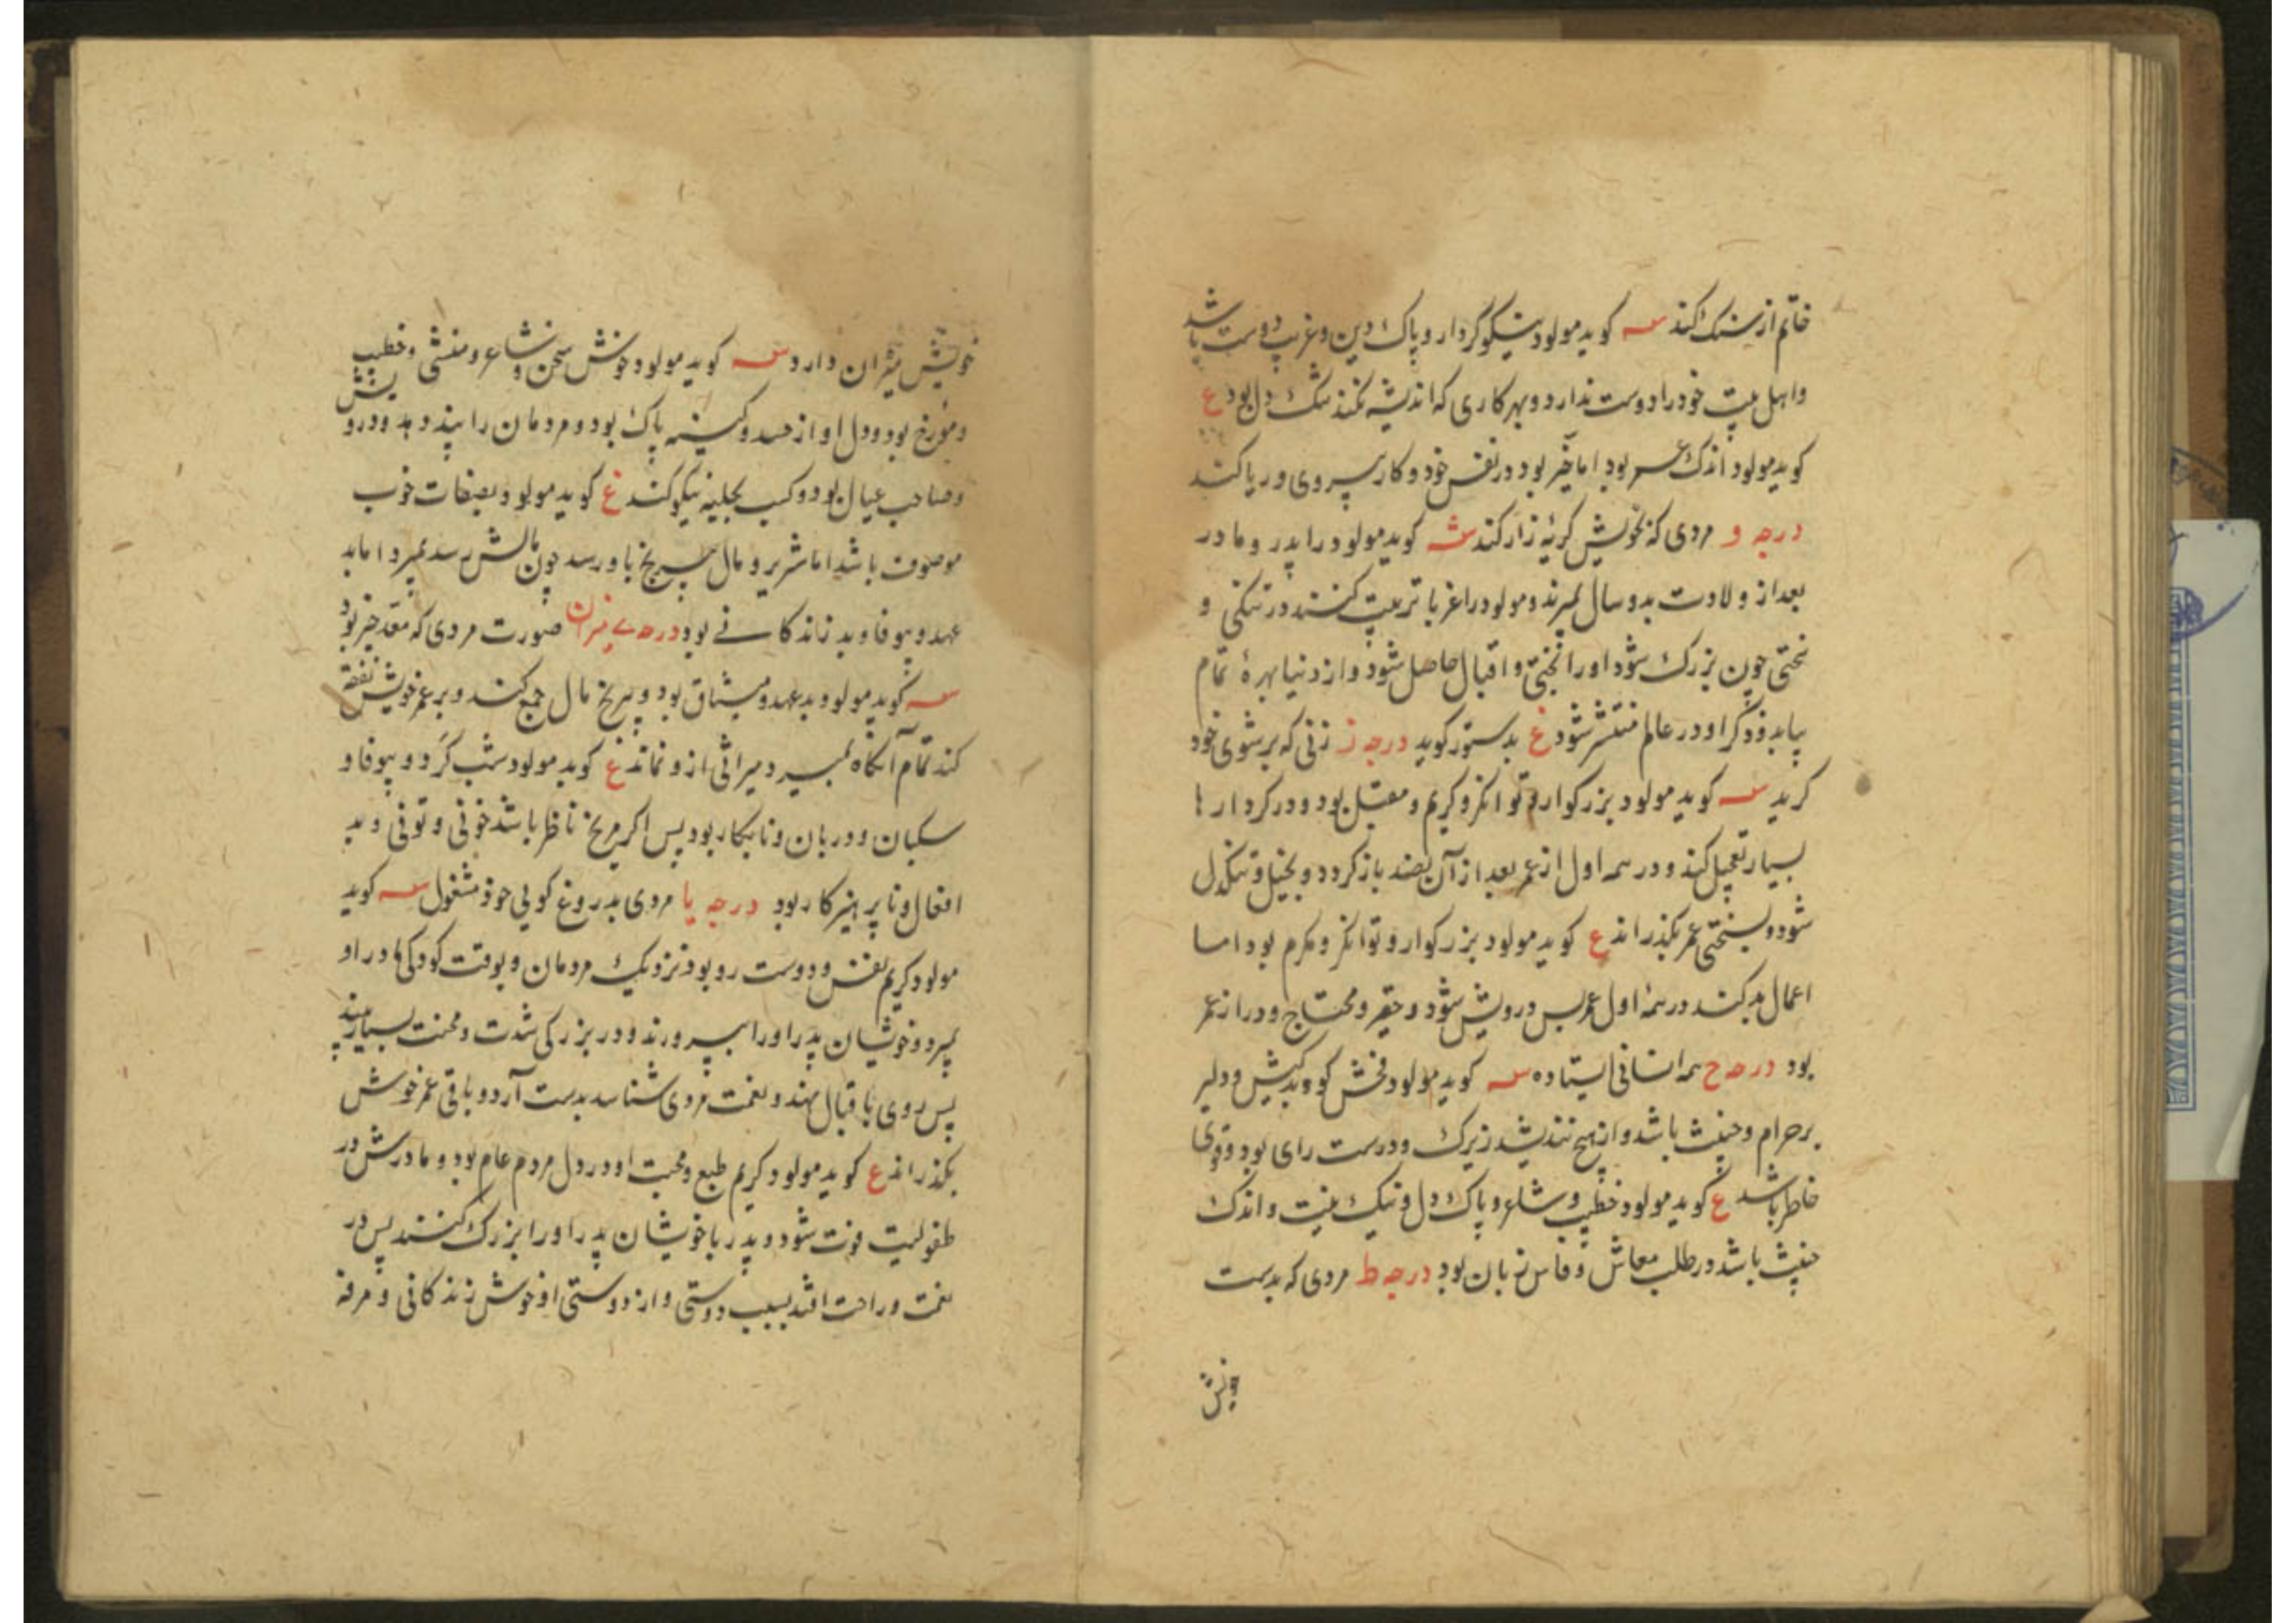 خاتم از سنک کند سه کوید مولود نیکو کردار و پاک دین و غریب دوست باشد
و اهل بیت خود را دوست ندارد و بهر کاری که اندیشه کند تنک دل بود ع
کوید مولود اندک عمر بود اما خیر بود در نفس خود و کار پس روی و ریا کند
درجه و مردی که بخویش کریهٔ زار کند سه کوید مولود را پدر و مادر
بعد از ولادت بدو سال بمیرند و مولود را غربا تربیت کنند در تنکی و
سختی چون بزرک شود او را بختی و اقبال حاصل شود و از دنیا بهرهٔ تمام
بیابد و ذکر او در عالم منتشر شود ع بدستور کوید درجه ز زنی که بر شوی خود
کرید سه کوید مولود بزرکوار و توانکر و کریم و مقبل بود و در کردارها
بسیار تعجیل کند و در سه اول از عمر بعد از آن بضد باز کردد و بخیل و تنکدل
شود و بسختی عمر بکذراند ع کوید مولود بزرکوار و توانکر و مکرم بود اما
اعمال بد کند در سهٔ اول عمر پس درویش شود و حقیر و محتاج و دراز عمر
بود درجه ح سه انسانی ایستاده سه کوید مولود فحش کو و بدکیش و دلیر
بر حرام و خبیث باشد و از هیچ نندیشد زیرک و درست رای بود و قوی
خاطر باشد ع کوید مولود خطیب و شاعر و پاک دل و نیک نیت و اندک
خبیث باشد در طلب معاش و فاس زبان بود درجه ط مردی که بدست
خویش میزان دارد سه کوید مولود خوش سخن و شاعر و منشی و خطیب
و مورخ بود و دل او از حسد و کینه پاک بود و مردمان را پند دهد و درویش
و صاحب عیال بود و کسب بجلیه نیکو کند ع کوید مولود بصفات خوب
موصوف باشد اما شریر و مال برنج باو رسد چون مالش رسد بمیرد اما بد
عهد و بیوفا و بد زندکانی بود درجه ی میزان صورت مردی که مقدحیز بود
سه کوید مولود بد عهد و میثاق بود و برنج مال جمع کند و بر عمر خویش نفقه
کند تمام آنکاه بمیرد و میراثی ازو نماند ع کوید مولود شب کرد و بیوفا و
سکبان و دربان و نابکار بود پس اکر مریخ ناظر باشد خونی و تونی و بد
افعال و ناپرهیزکار بود درجه یا مردی بدروغ کویی خود مشغول سه کوید
مولود کریم نفس و دوست رو بود نزدیک مردمان و بوقت کودکی مادر او
بمیرد و خویشان پدر او را بپرورند و در بزرکی شدت و محنت بسیار بیند
پس روی باقبال نهند و نعمت مردی شناسد بدست آرد و باقی عمر خوش
بکذراند ع کوید مولود کریم طبع و محبت او در دل مردم عام بود و مادرش در
طفولیت فوت شود و پدر با خویشان پدر او را بزرک کنند پس در
نعمت و راحت افتد بسبب دوستی و از دوستی او خوش زندکانی و مرفه
ویش